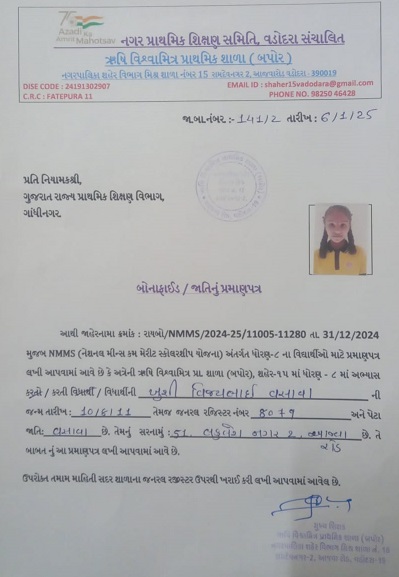 Azadi Ka Amrit Mahotsav
નગર પ્રાથમિક શિક્ષણ સમિતિ, વડોદરા સંચાલિત
ઋષિ વિશ્વામિત્ર પ્રાથમિક શાળા ( બપોર )
નગરપાલિકા શહેર વિભાગ મિશ્ર શાળા નંબર 15 રામદેવનગર 2, આજવારોડ વડોદરા - 390019
DISE CODE : 24191302907 EMAIL ID : shaher15vadodara@gmail.com
C.R.C : FATEPURA 11 PHONE NO. 98250 46428
જા.બા.નંબર :- 141/2 તારીખ : 6/1/25
પ્રતિ નિયામકશ્રી,
ગુજરાત રાજ્ય પ્રાથમિક શિક્ષણ વિભાગ,
ગાંધીનગર.
બોનાફાઈડ / જાતિનું પ્રમાણપત્ર
આથી જાહેરનામા ક્રમાંક : રાપબો/NMMS/2024-25/11005-11280 તા. 31/12/2024
મુજબ NMMS (નેશનલ મીન્સ કમ મેરીટ સ્કોલરશીપ યોજના) અંતર્ગત ધોરણ-૮ ના વિદ્યાર્થીઓ માટે પ્રમાણપત્ર
લખી આપવામાં આવે છે કે અત્રેની ઋષિ વિશ્વામિત્ર પ્રા. શાળા (બપોર), શહેર-૧૫ માં ધોરણ - ૮ માં અભ્યાસ
કરતો / કરતી વિદ્યાર્થી / વિદ્યાર્થીની ખુશી વિજયભાઈ વસાવા ની
જન્મ તારીખ : 10/8/11 તેમજ જનરલ રજિસ્ટર નંબર અને પેટા
જાતિ: વસાવા છે. તેમનું સરનામું : 51, નગર 2, આજવા રોડ છે. તે
બાબત નું આ પ્રમાણપત્ર લખી આપવામાં આવે છે.
ઉપરોક્ત તમામ માહિતી સદર શાળાના જનરલ રજીસ્ટર ઉપરથી ખરાઈ કરી લખી આપવામાં આવેલ છે.
મુખ્ય શિક્ષક
ઋષિ વિશ્વામિત્ર પ્રાથમિક શાળા (બપોર)